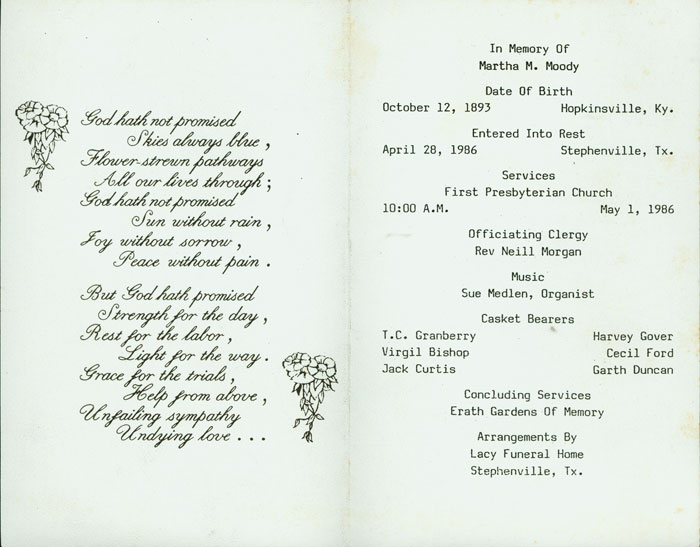 God hath not promised
Skies always blue,
Flower-strewn pathways
All our lives through;
God hath not promised
Sun without rain,
Joy without sorrow,
Peace without pain.
But God hath promised
Strength for the day,
Rest for the labor,
Light for the way.
Grace for the trials,
Help from above,
Unfailing sympathy
Undying love...
In Memory Of
Martha M. Moody
Date Of Birth
October 12, 1893 Hopkinsville, Ky.
Entered Into Rest
April 28, 1986 Stephenville, Tx.
Services
First Presbyterian Church
10:00 A.M. May 1, 1986
Officiating Clergy
Rev Neill Morgan
Music
Sue Medlen, Organist
Casket Bearers
T.C. Granberry Harvey Gover
Virgil Bishop Cecil Ford
Jack Curtis Garth Duncan
Concluding Services
Erath Gardens Of Memory
Arrangements By
Lacy Funeral Home
Stephenville, Tx.